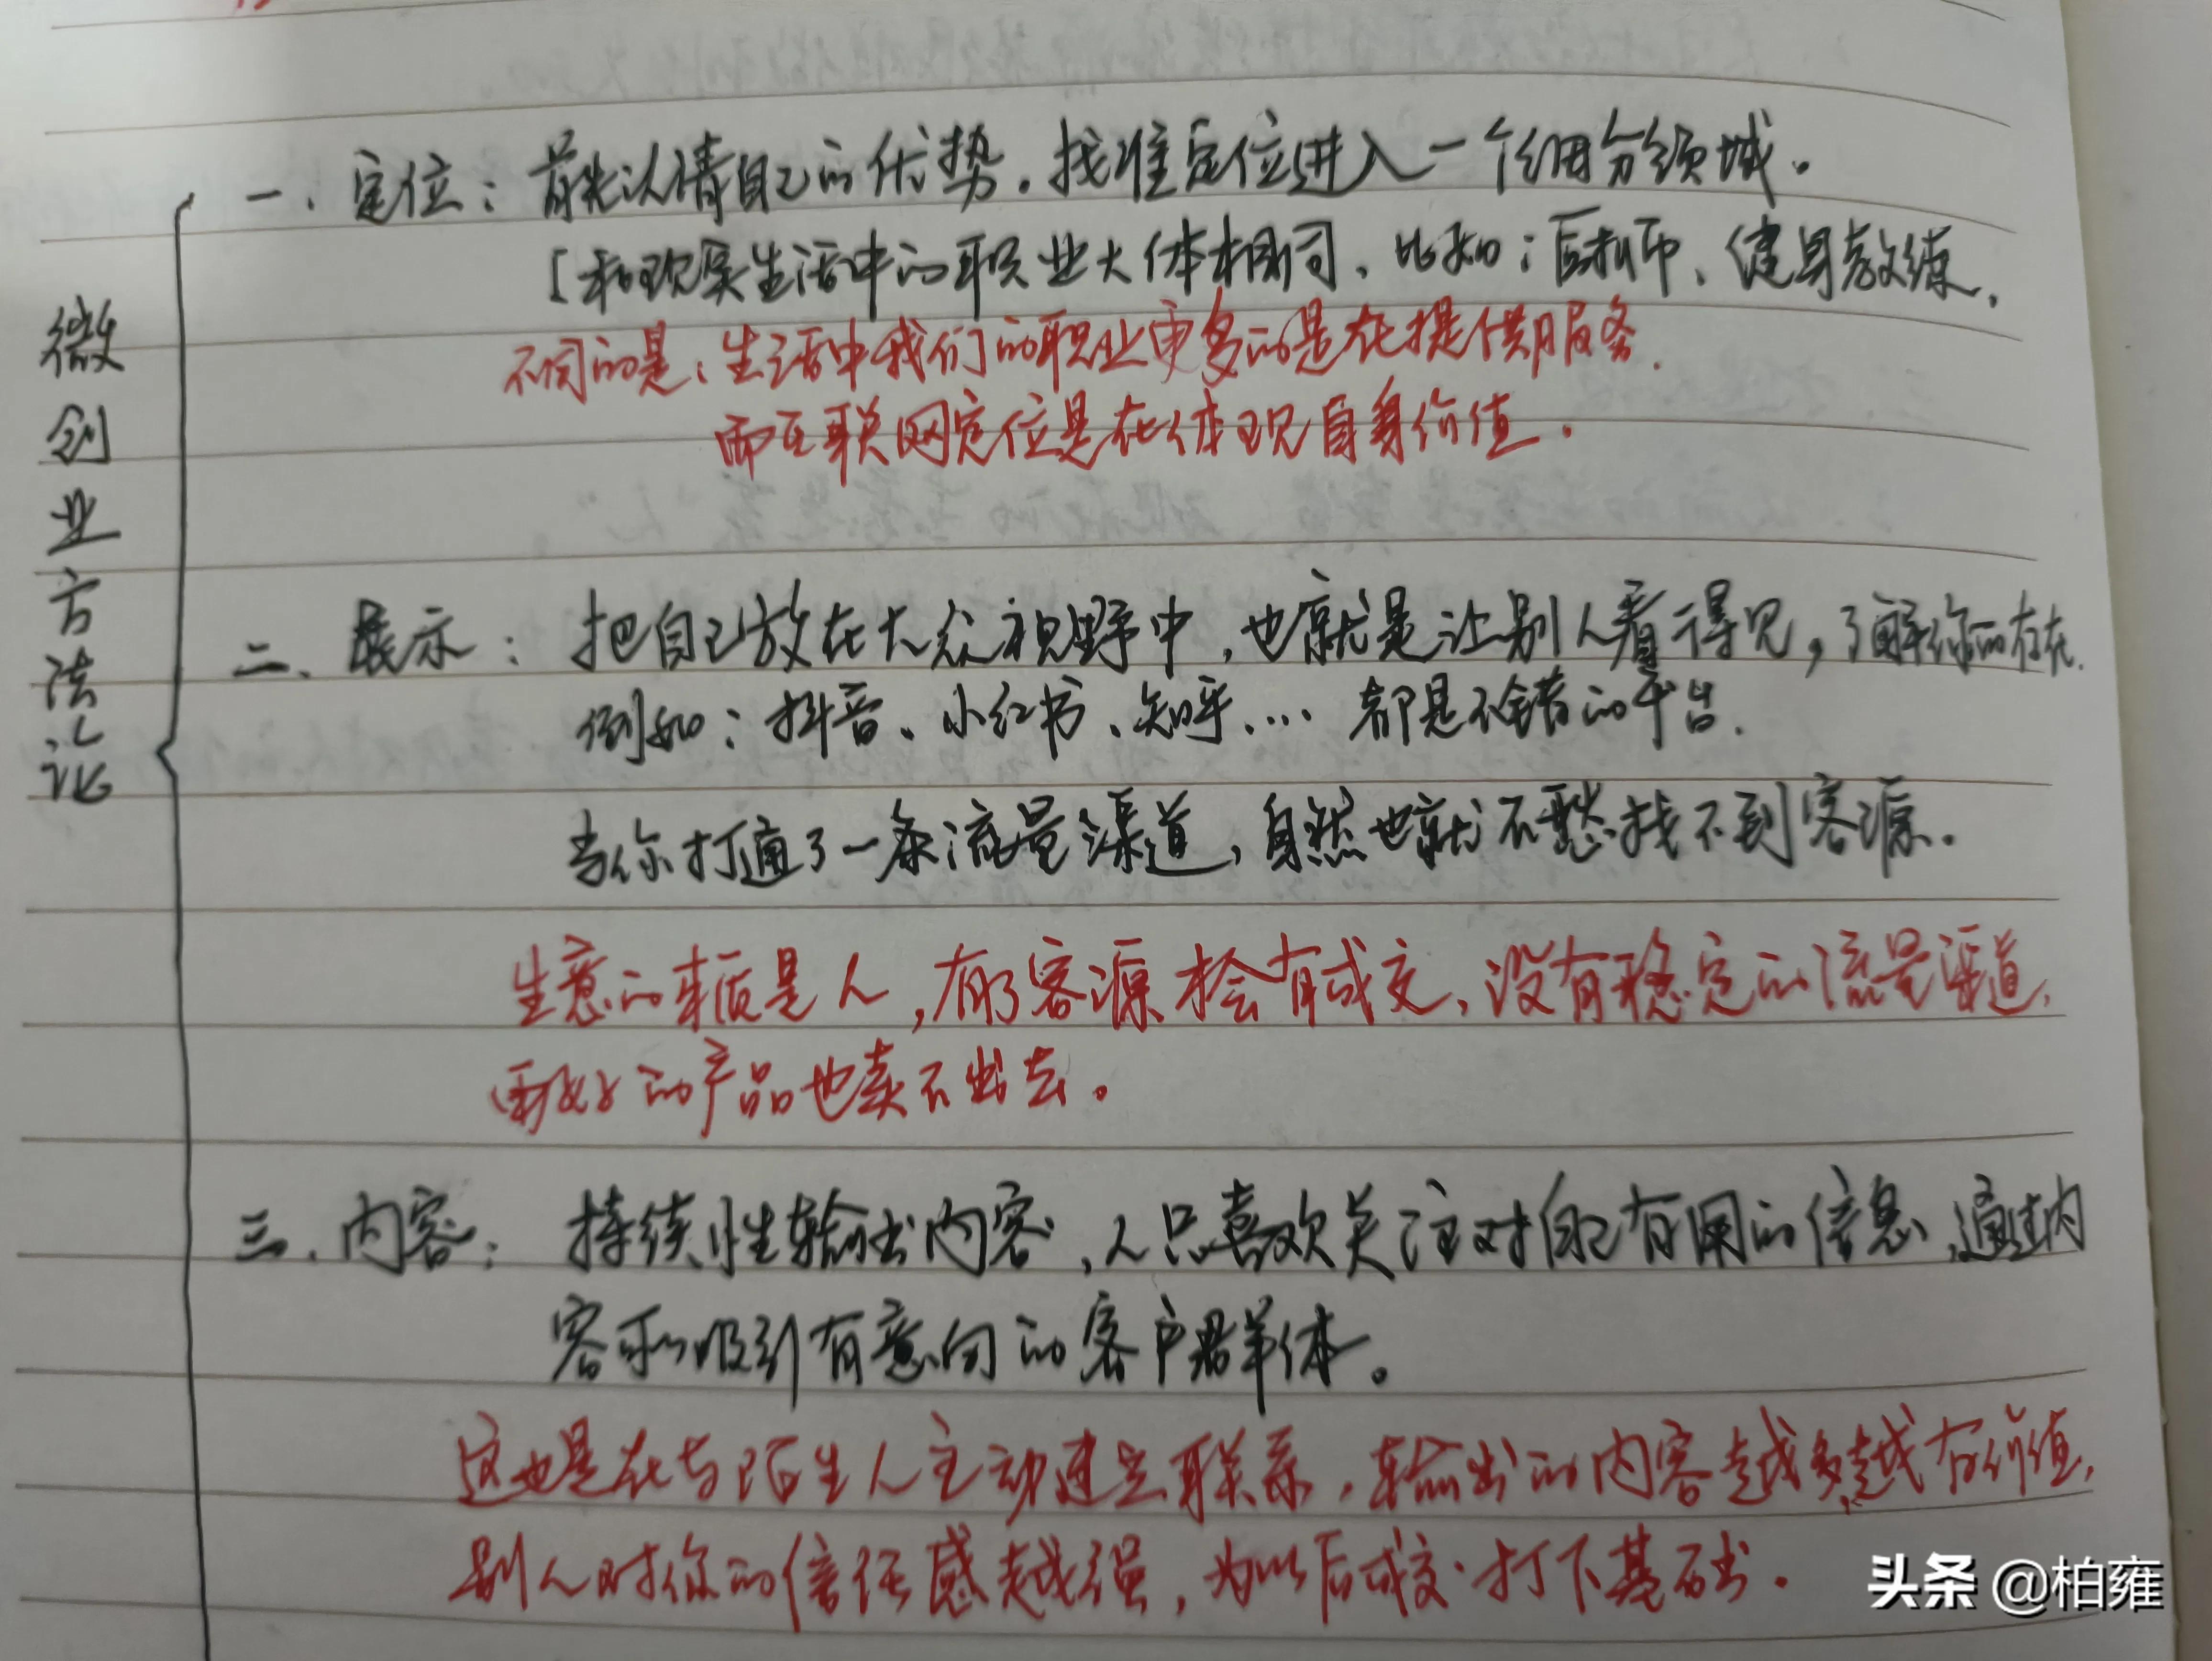 微创业方法论
一、定位：首先认清自己的优势。找准定位进入一个细分领域。
[和现实生活中的职业大体相同、比如：厨师、健身教练，
不同的是：生活中我们的职业更多的是在提供服务.
而互联网定位是在体现自身价值.
二、展示：把自己放在大众视野中，也就是让别人看得见，了解你的存在.
例如：抖音、小红书、知乎.... 都是不错的平台.
当你打通了一条流量渠道，自然也就不愁找不到客源.
生意的本质是人，有了客源才会有成交，没有稳定的流量渠道，
再好的产品也卖不出去。
三、内容：持续性输出内容，人只喜欢关注对自己有用的信息，通过内
容可以吸引有意向的客户群体。
这也是在与陌生人主动建立联系，输出的内容越多越有价值，
别人对你的信任感越强，为以后成交打下基础.
头条 @柏雍